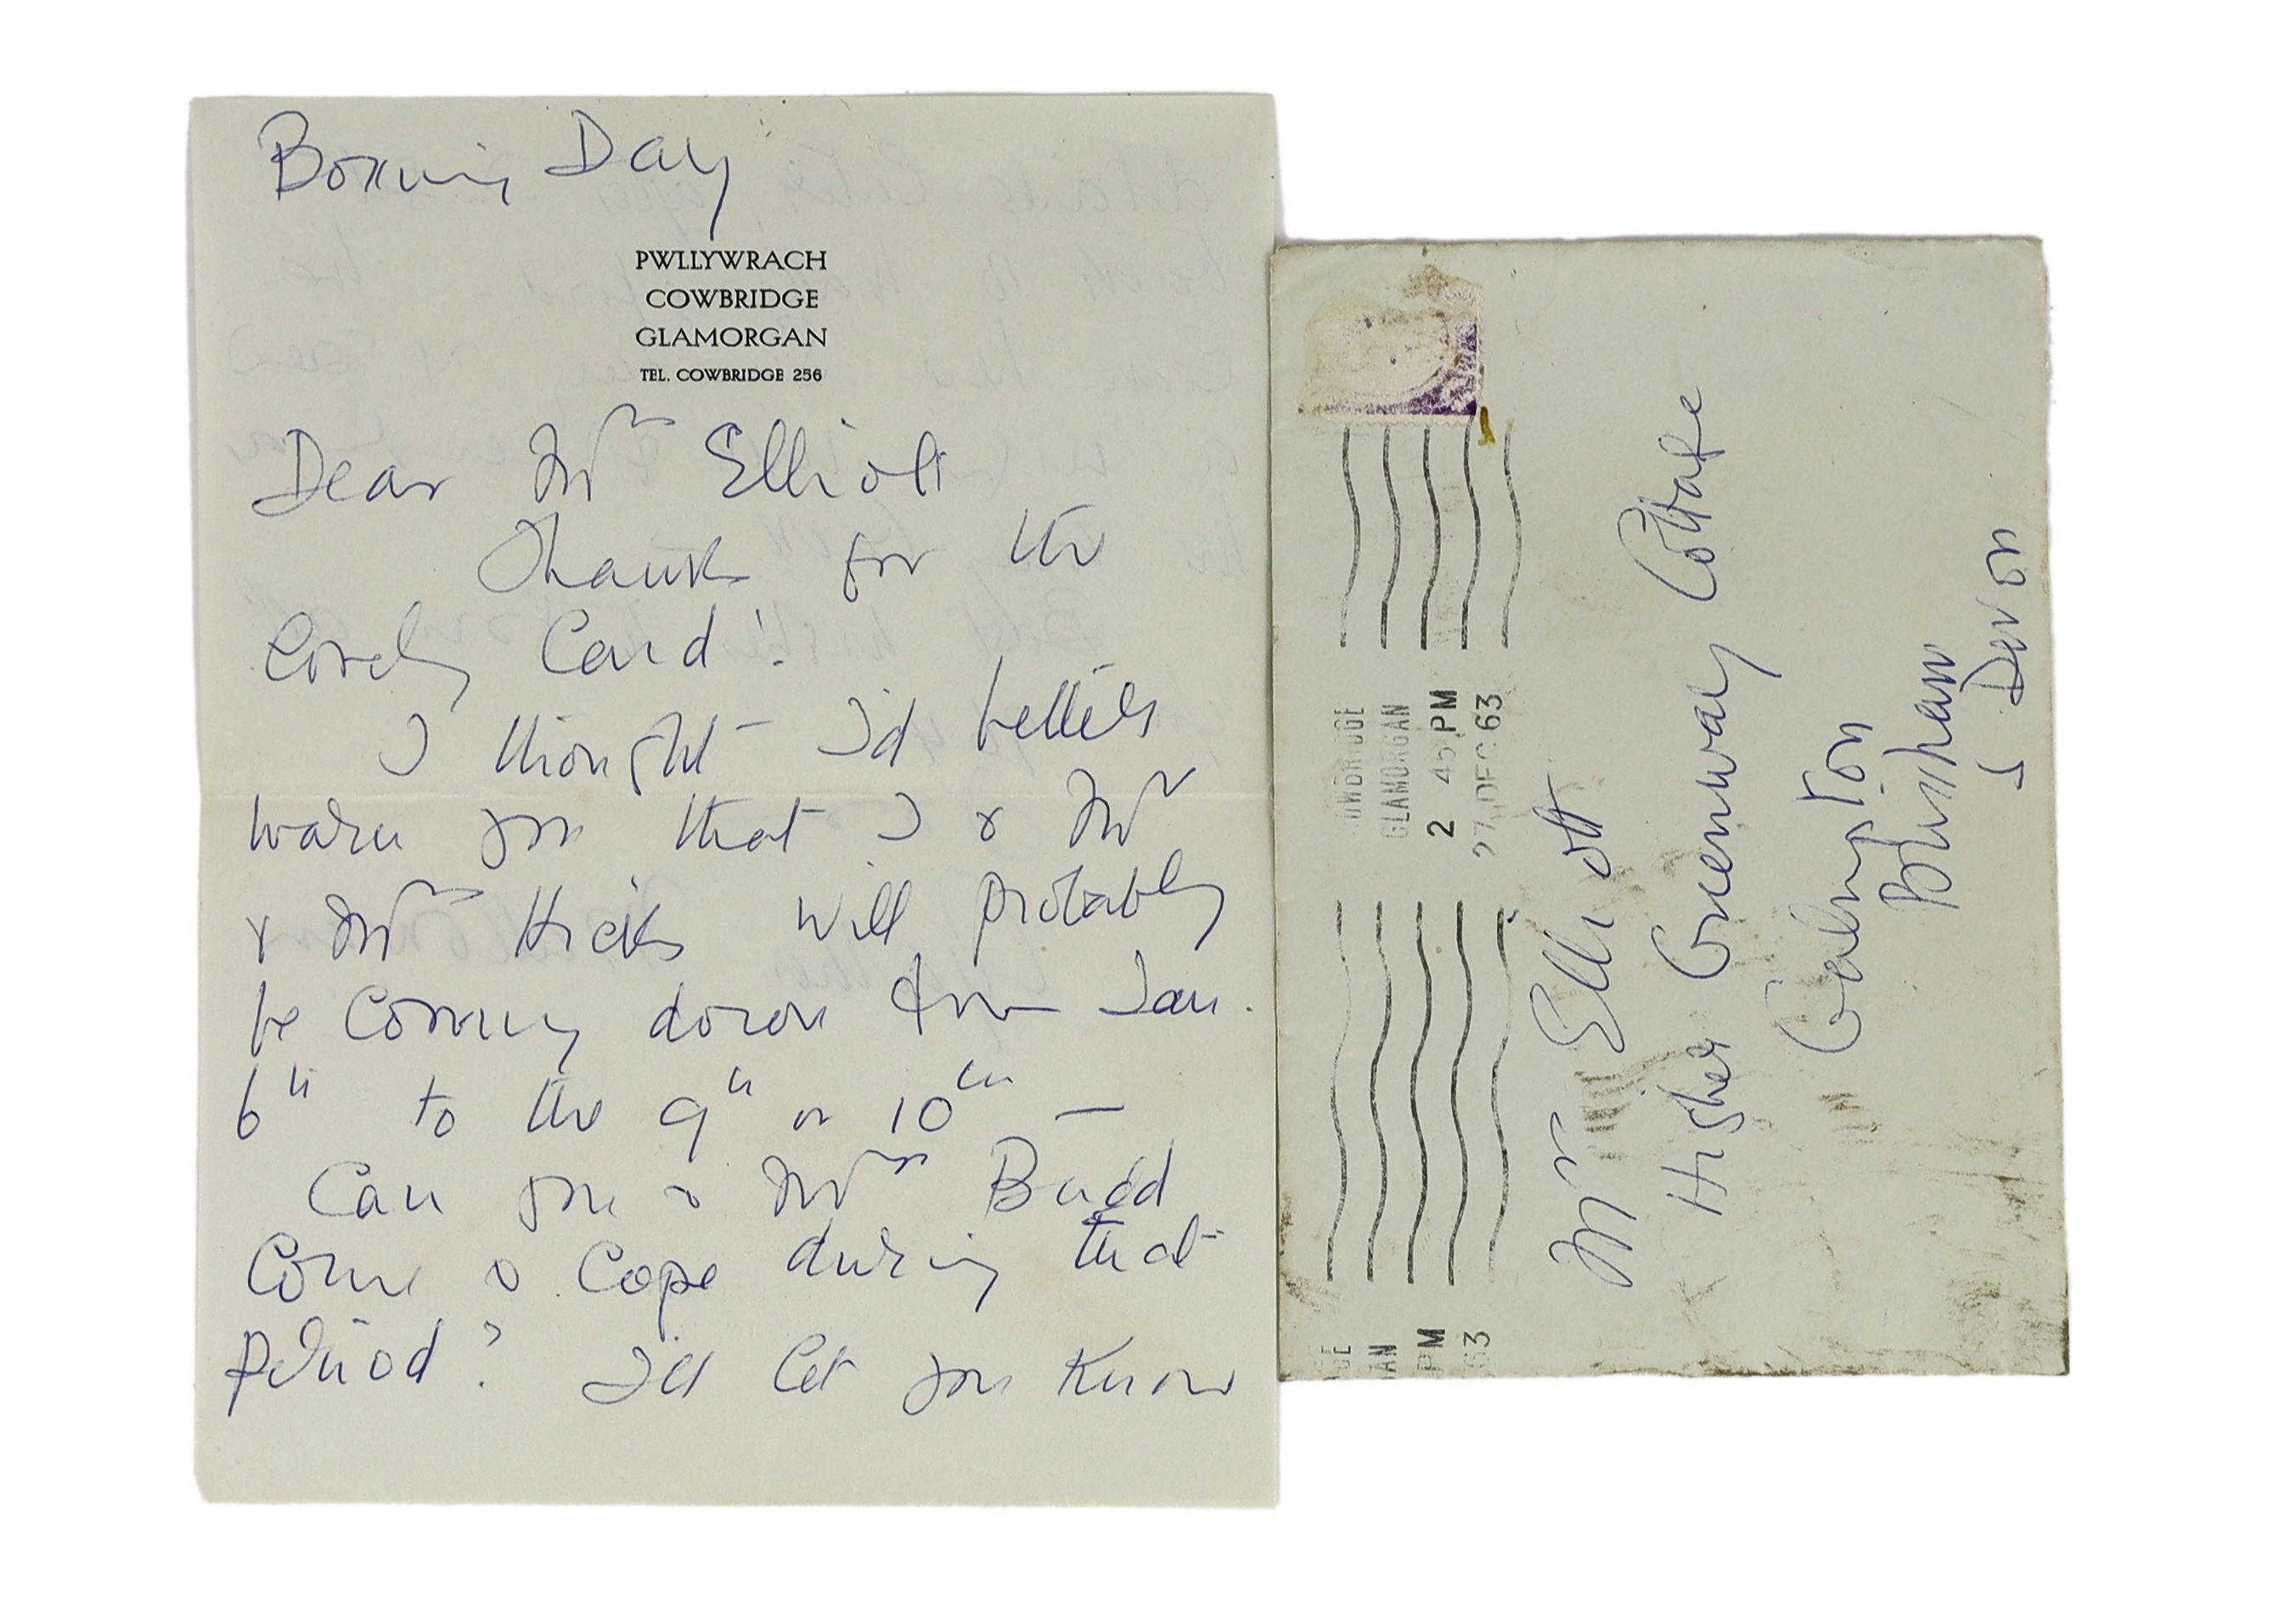 Boxing Day
PWLLYWRACH
COWBRIDGE
GLAMORGAN
TEL. COWBRIDGE 256
Dear Mrs Elliott
Thanks for the
Lovely Card!
I thought I'd better
warn you that I & Mr
& Mrs Hicks will probably
be Coming down from Jan.
6th to the 9th or 10th —
Can you & Mrs Budd
Come & Cope during that
period? I'll let you know
COWBRIDGE
GLAMORGAN
2 45 PM
27 DEC 63
DGE
AN
PM
63
Mrs Elliott
Higher Greenway Cottage
Galmpton
Brixham
S Devon